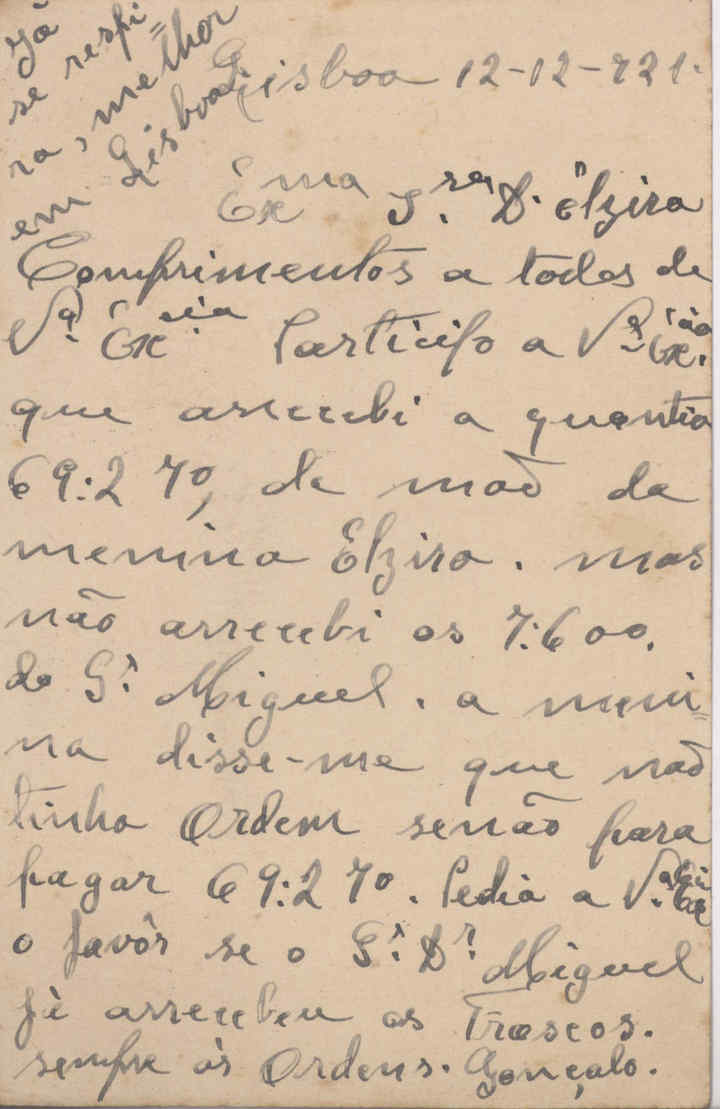 Já
se respi=
ra, melhor
em Lisboa
Lisboa 12-12-921.
Exma Sra D. Elzira
Comprimentos a todos de
Va. Excia Participo a Va. Excia
que arrecebi a quantia
69:270, da mão da
menina Elzira. mas
não arrecebi os 7:600.
do Sr. Miguel. a meni=
na disse-me que não
tinha Ordem senão para
pagar 69:270. Pedia a Va. Excia
o favôr se o Sr. Dr. Miguel
já arrecebeu os Frascos.
sempre ás Ordens. Gonçalo.